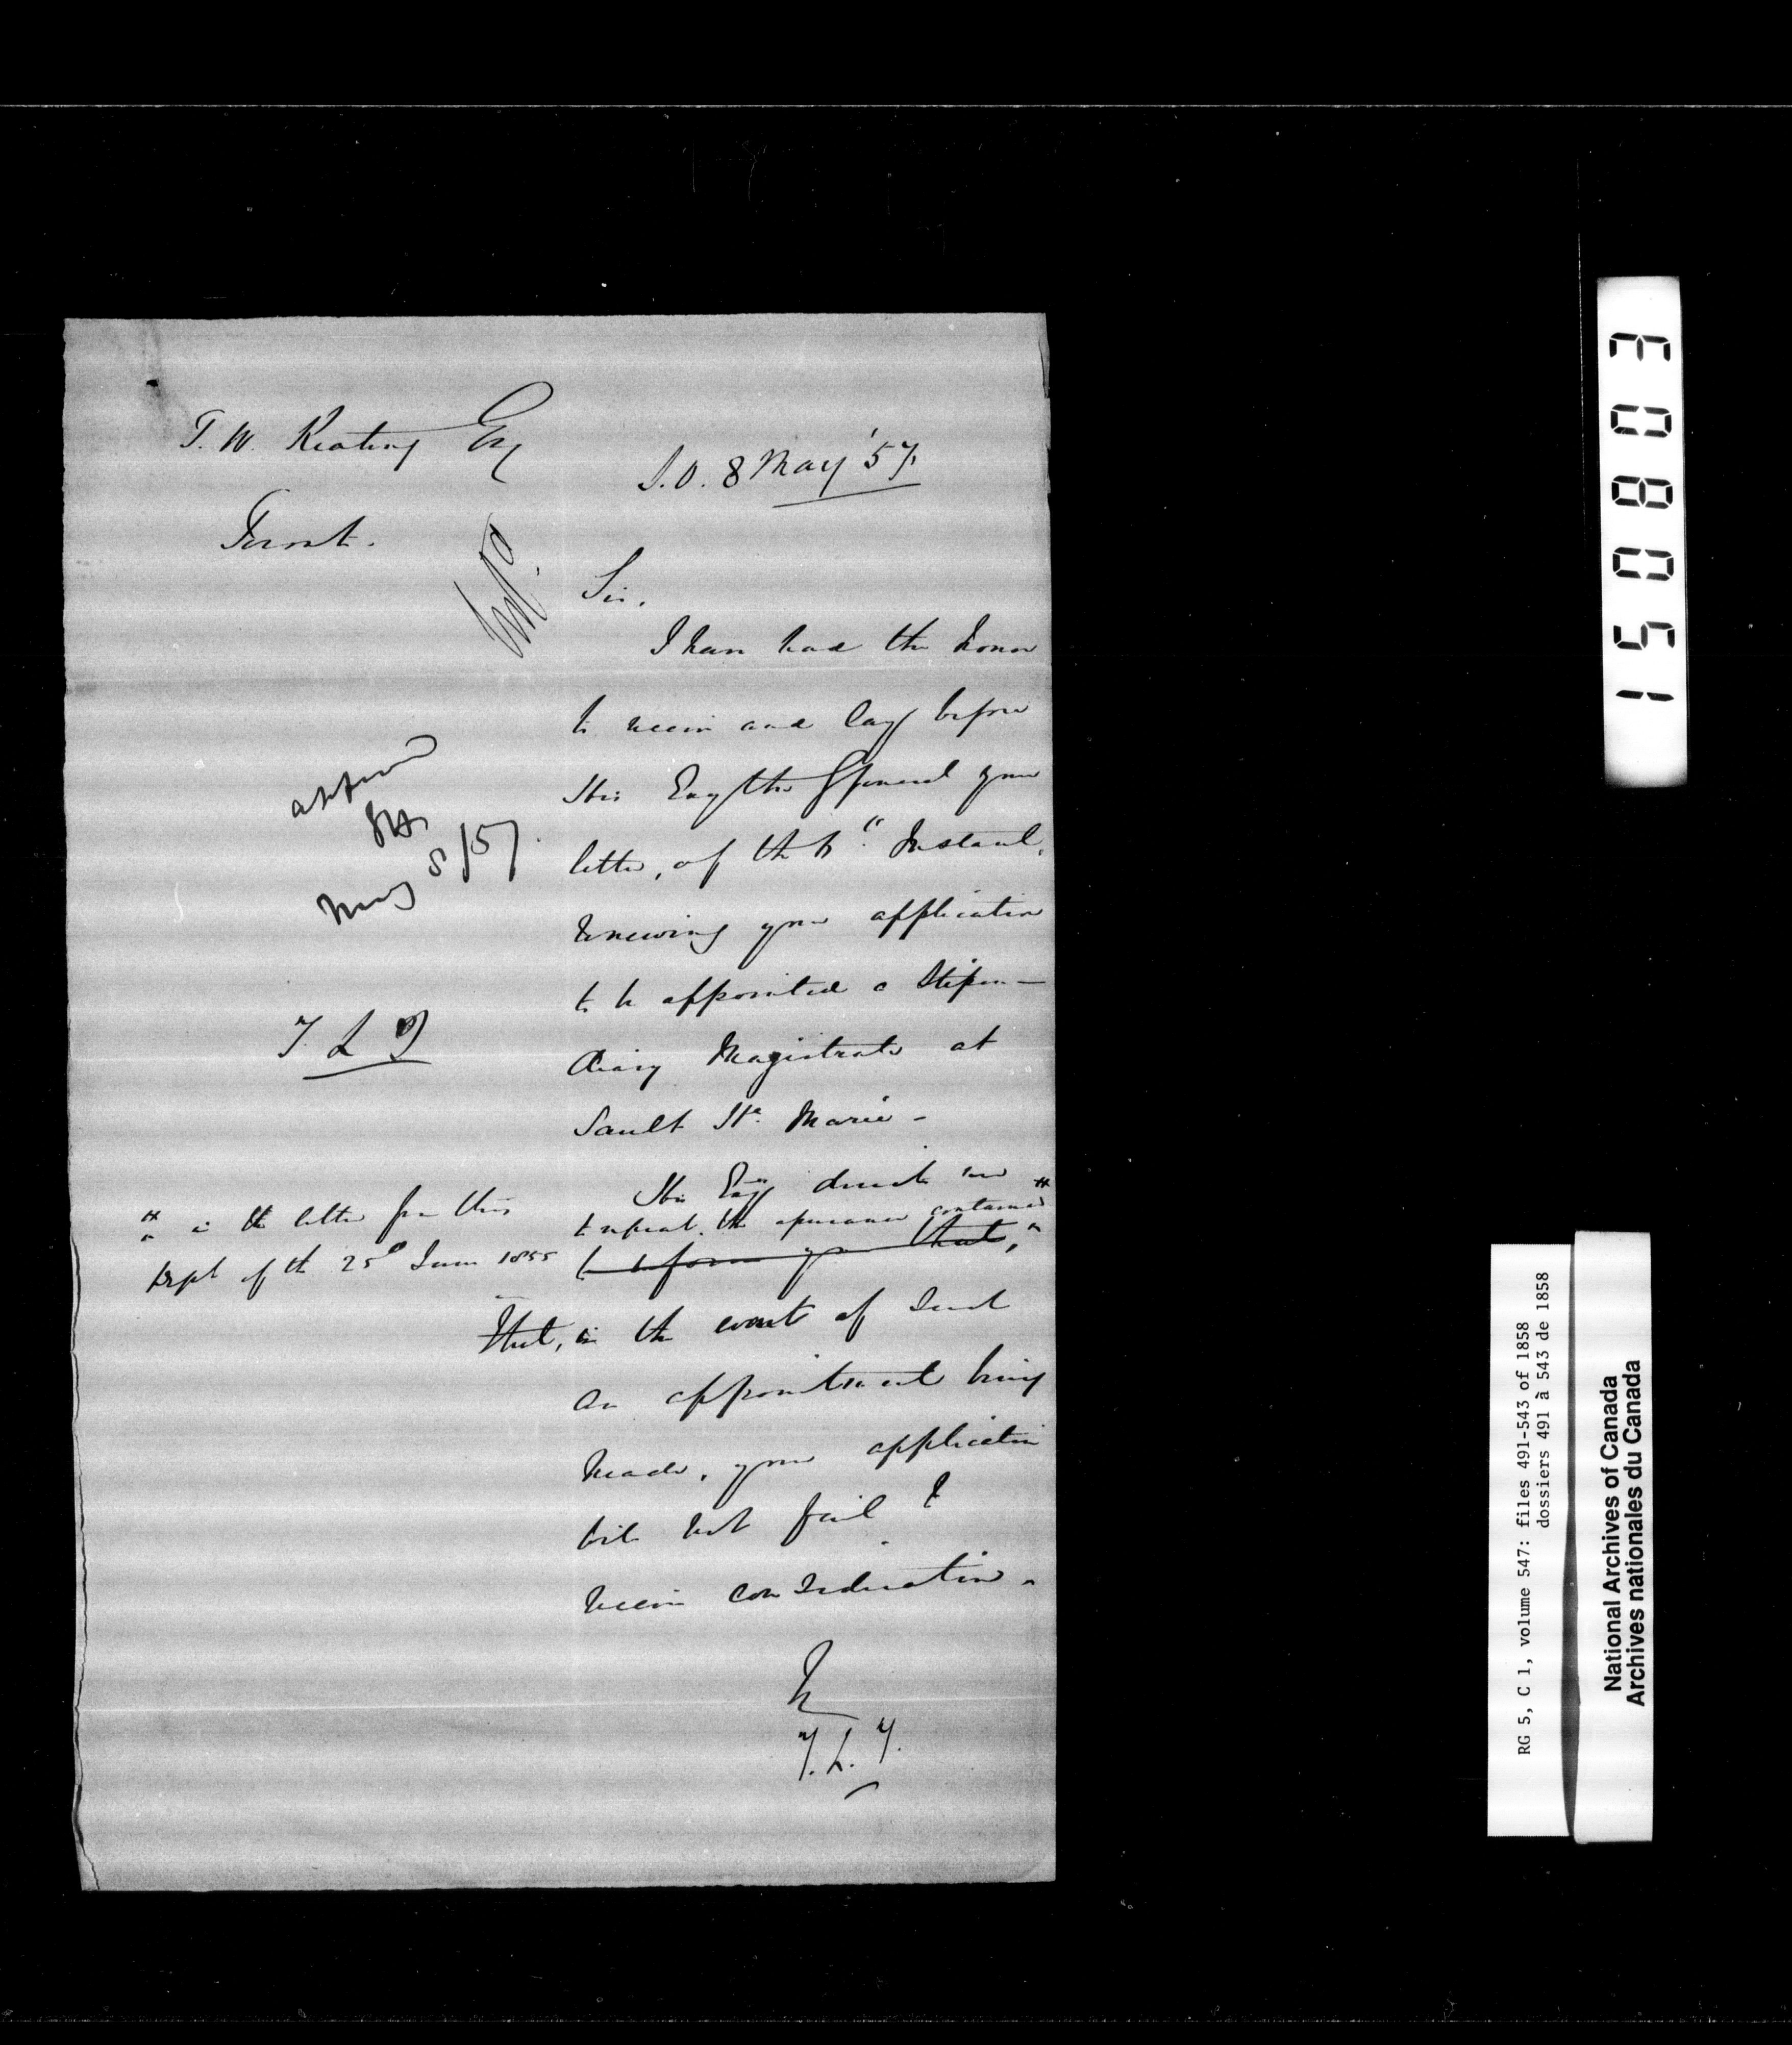 T. W. Keating Esq
Toront.
S.O. 8 May '57.
Sir,
I have had the honor
to receive and lay before
His Excy the G General your
letter, of the Instant,
renewing your application
to be appointed a Stipen-
diary Magistrate at
Sault Ste. Marie -
His Excy directs me #
to repeat the assurance contained
to inform you that,
that, in the event of such
an appointment being
made, your application
will not fail to
receive consideration.
T.L.T.
approved
May 8/57.
T L T
# in the letter from this
Dept of the 25th June 1855
150803
RG 5, C 1, volume 547: files 491-543 of 1858
dossiers 491 à 543 de 1858
National Archives of Canada
Archives nationales du Canada